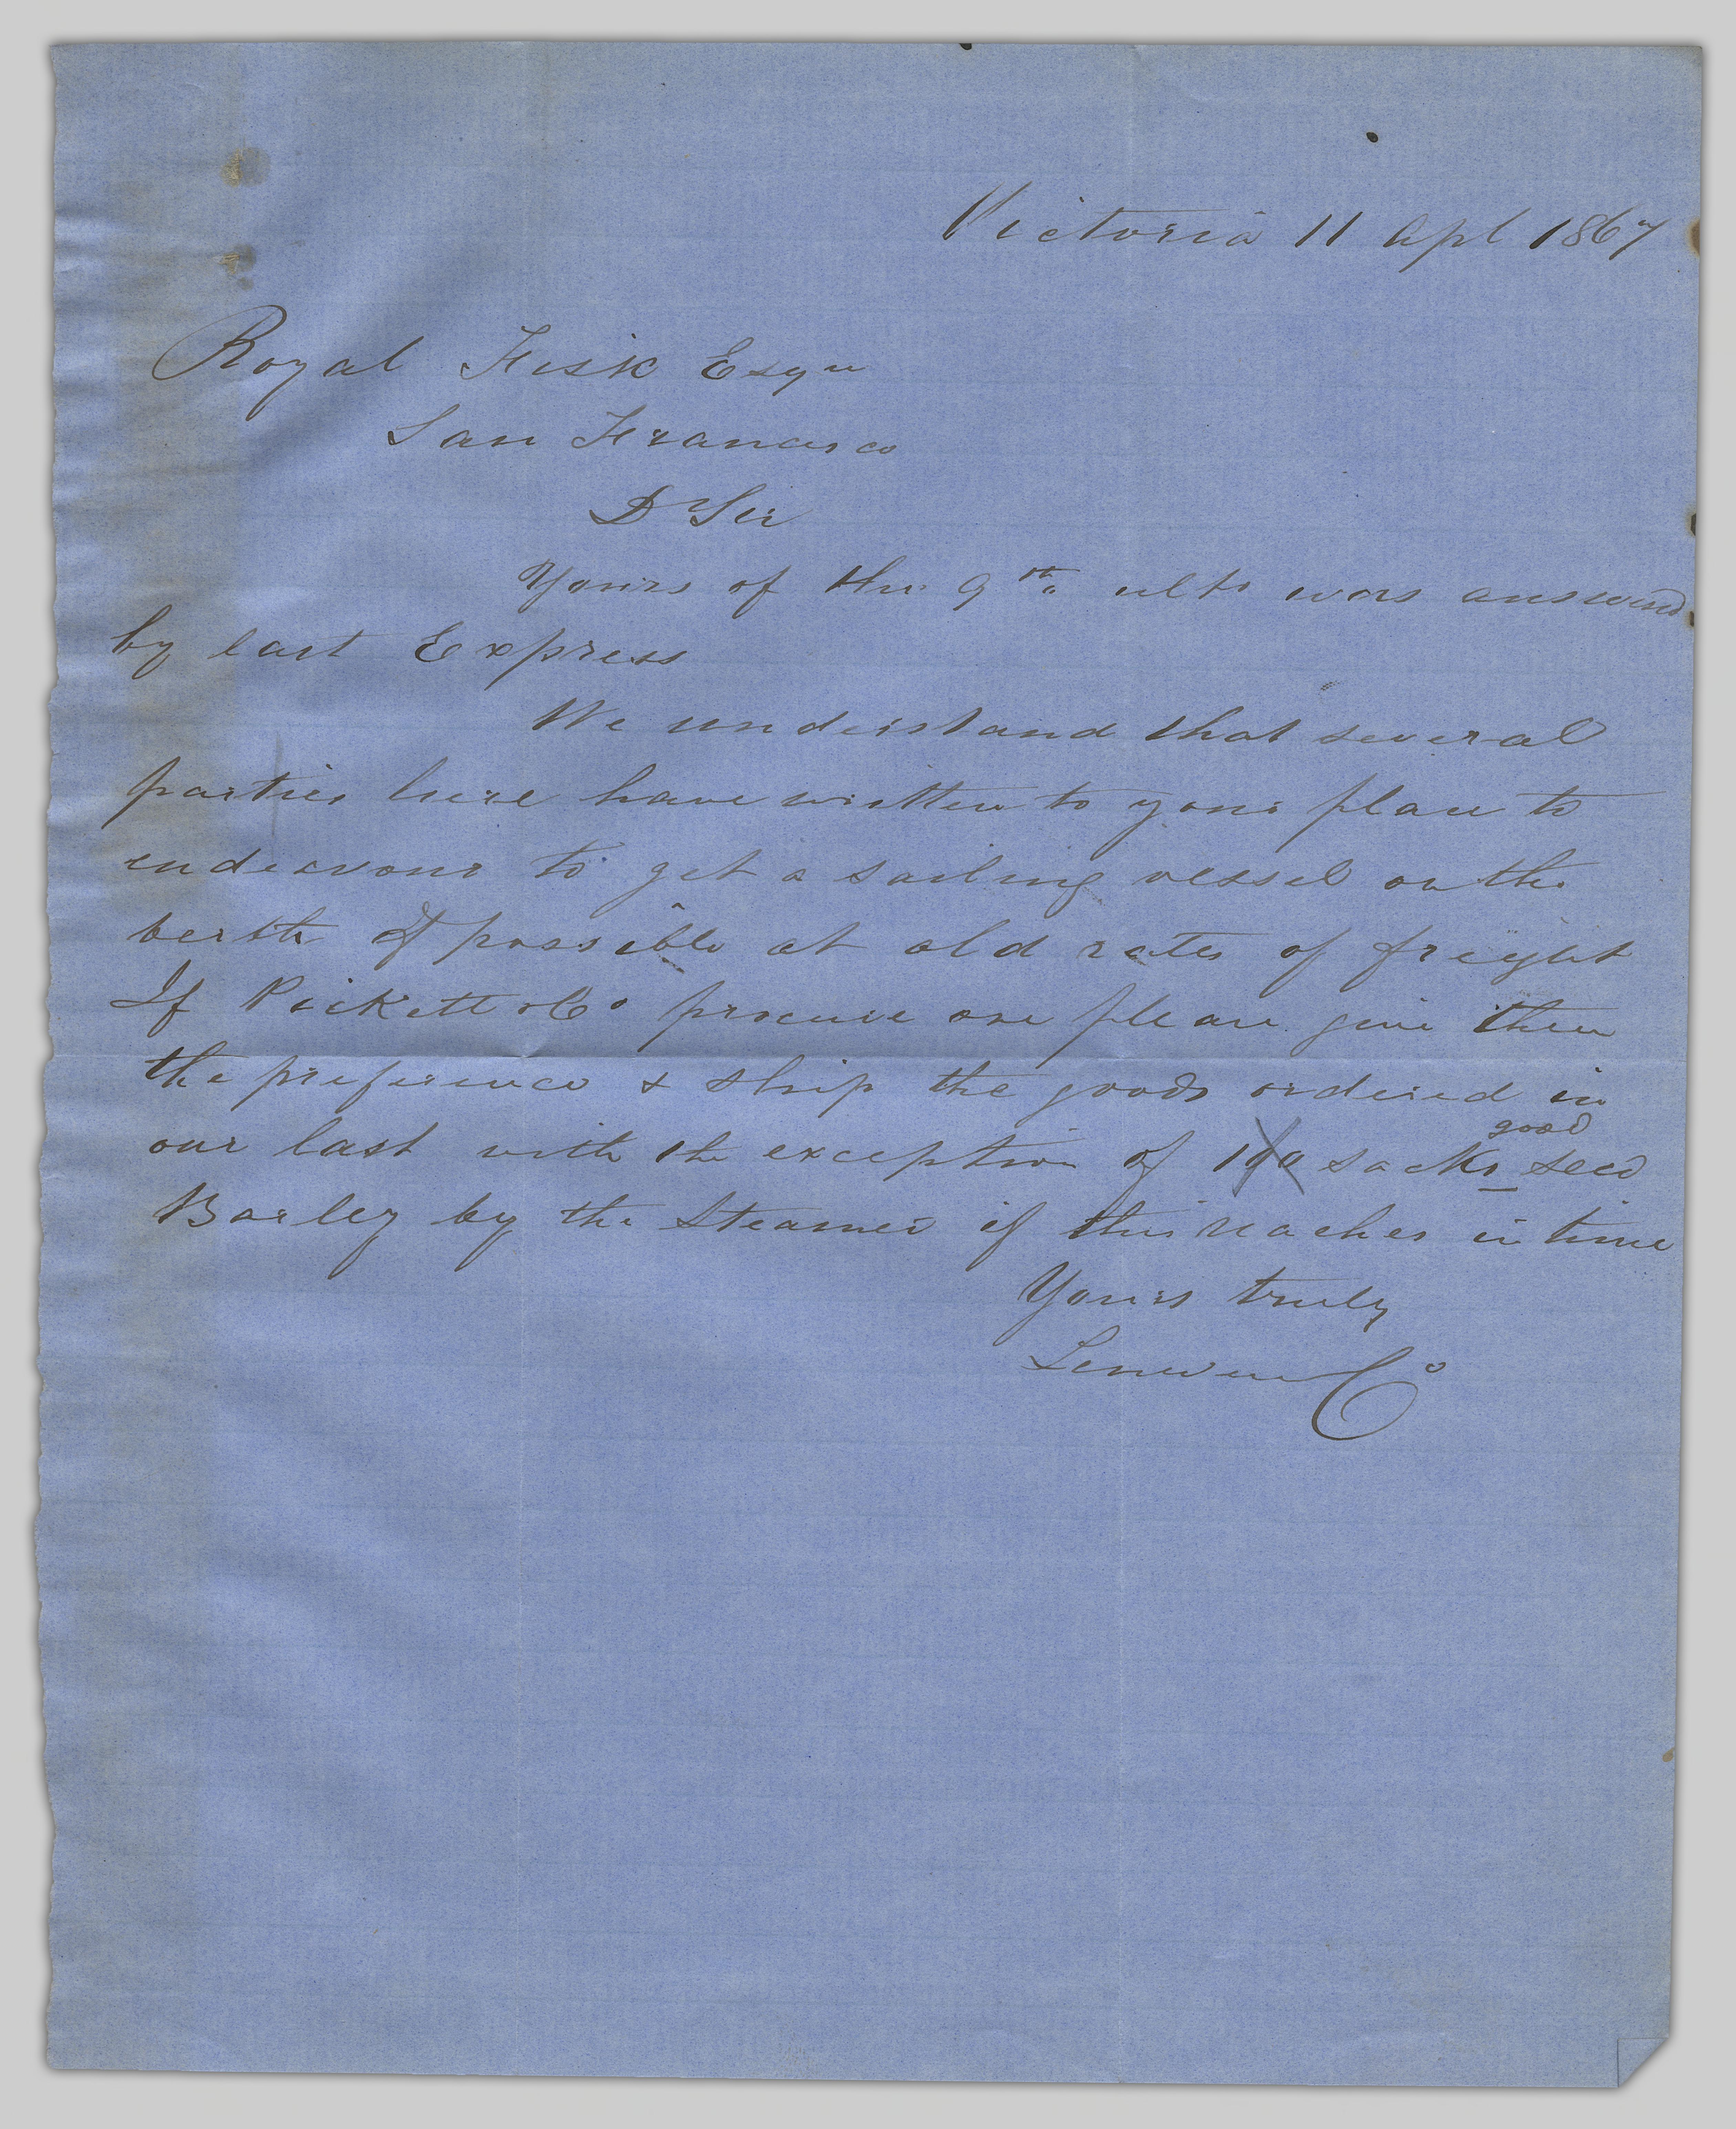 Victoria 11 Apl 1867
Royal Fisk Esqr
San Francisco
Dr Sir
Yours of the 9th ulto was answered
by last Express
We understand that several
parties here have written to your place to
endeavour to get a sailing vessel on the
berth if possible at old rates of freight
If Pickett & Co procure one please give them
the preference & ship the goods ordered in
our last with the exception of 100 sacks good seed
Barley by the Steamer if this reaches in time
Yours truly
Co